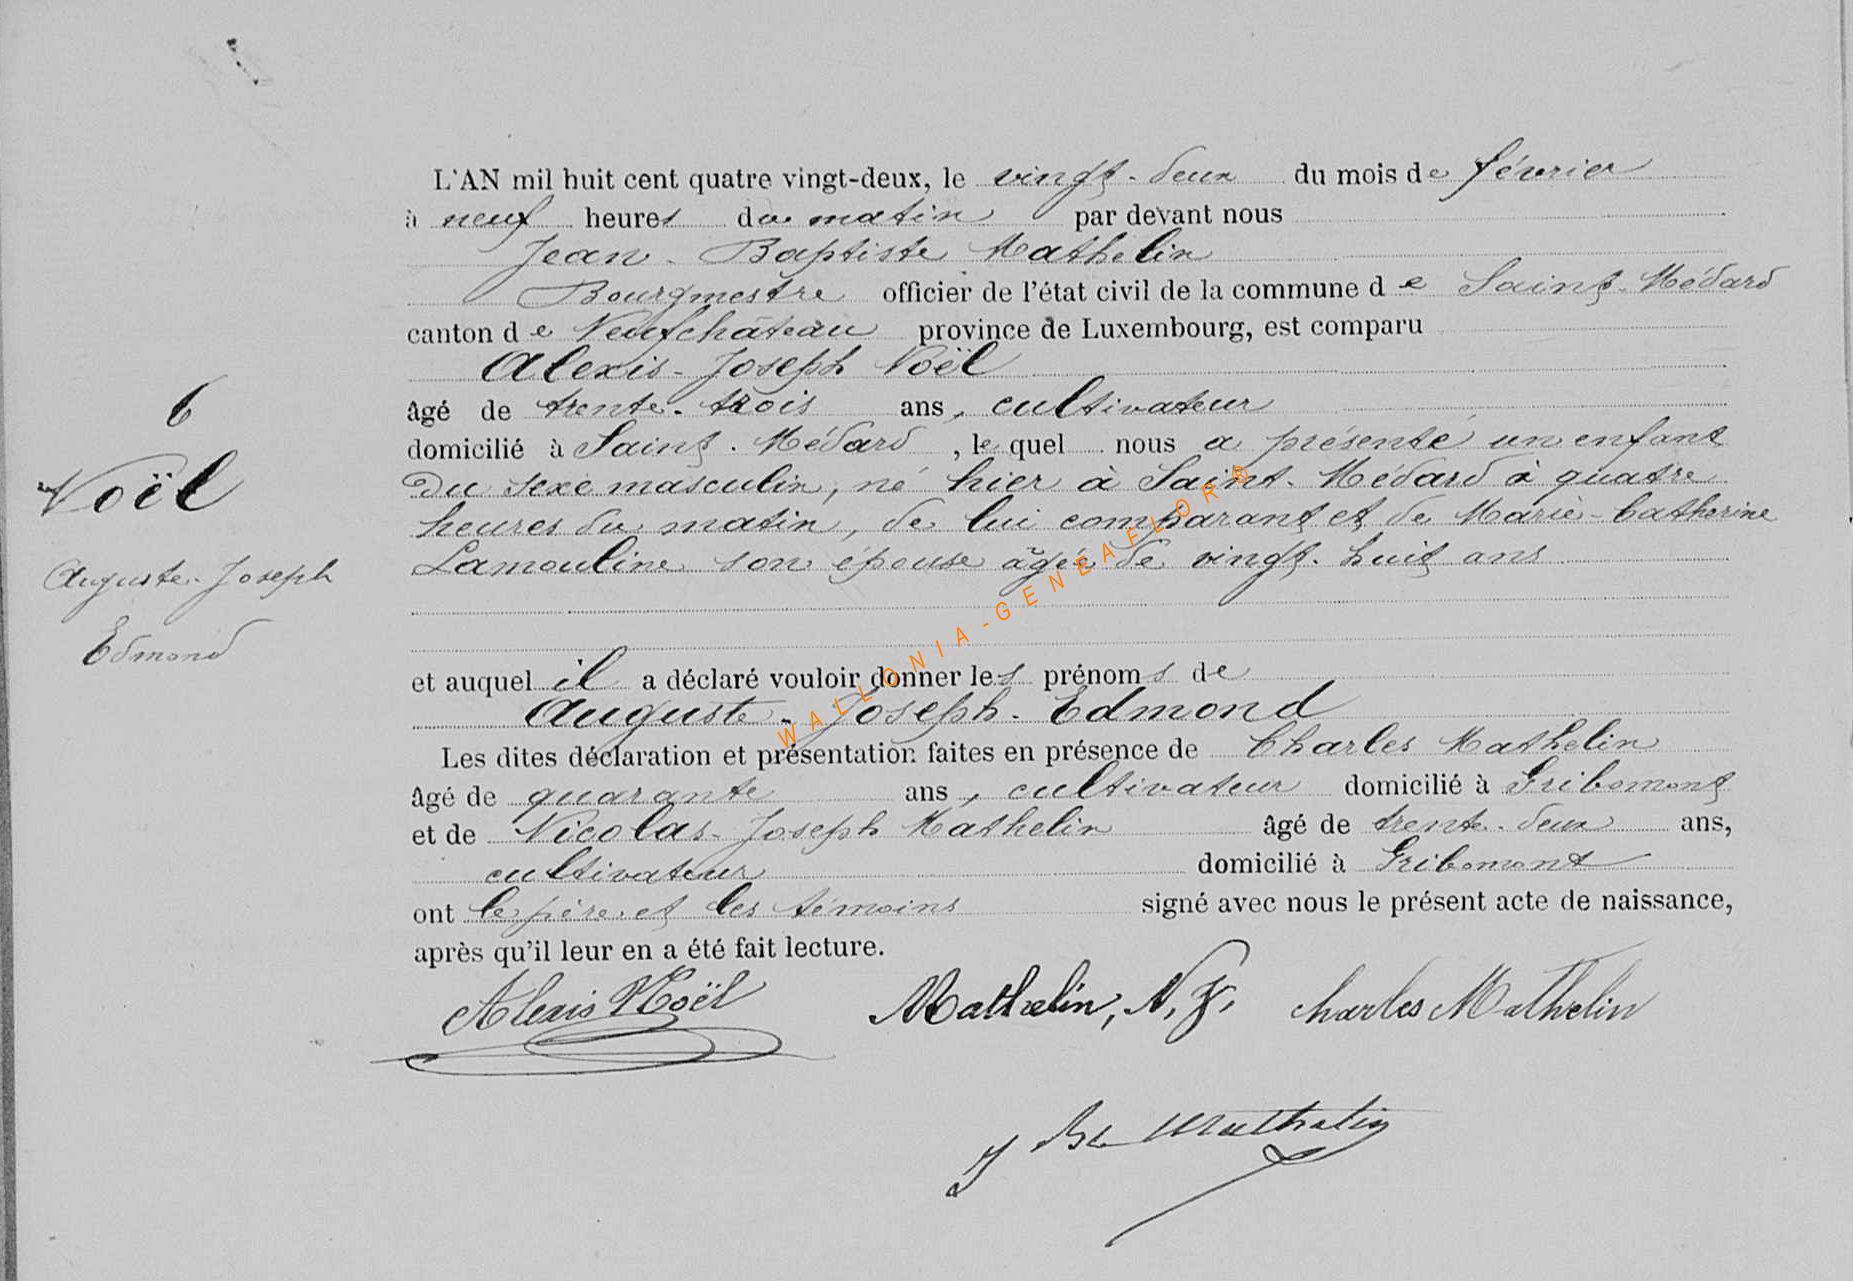 L'AN mil huit cent quatre vingt-deux, le vingt-deux du mois de février
à neuf heures du matin par devant nous
Jean-Baptiste Mathelin
Bourgmestre officier de l'état civil de la commune de Saint-Médard
canton de Neufchâteau province de Luxembourg, est comparu
Alexis-Joseph Noël
âgé de trente-trois ans, cultivateur
domicilié à Saint-Médard, lequel nous a présenté un enfant
du sexe masculin, né hier à Saint-Médard à quatre
heures du matin, de lui comparant et de Marie-Catherine
Lamouline son épouse âgée de vingt-huit ans
6
Noël
Auguste-Joseph
Edmond
et auquel il a déclaré vouloir donner les prénoms de
Auguste-Joseph-Edmond
Les dites déclaration et présentation faites en présence de Charles Mathelin
âgé de quarante ans, cultivateur domicilié à Gribomont
et de Nicolas-Joseph Mathelin âgé de trente-deux ans,
cultivateur domicilié à Gribomont
ont le père et les témoins signé avec nous le présent acte de naissance,
après qu'il leur en a été fait lecture.
Alexis Noël Mathelin, N. J. Charles Mathelin
J Bte Mathelin
WALLONIA-GENEAFLOR®